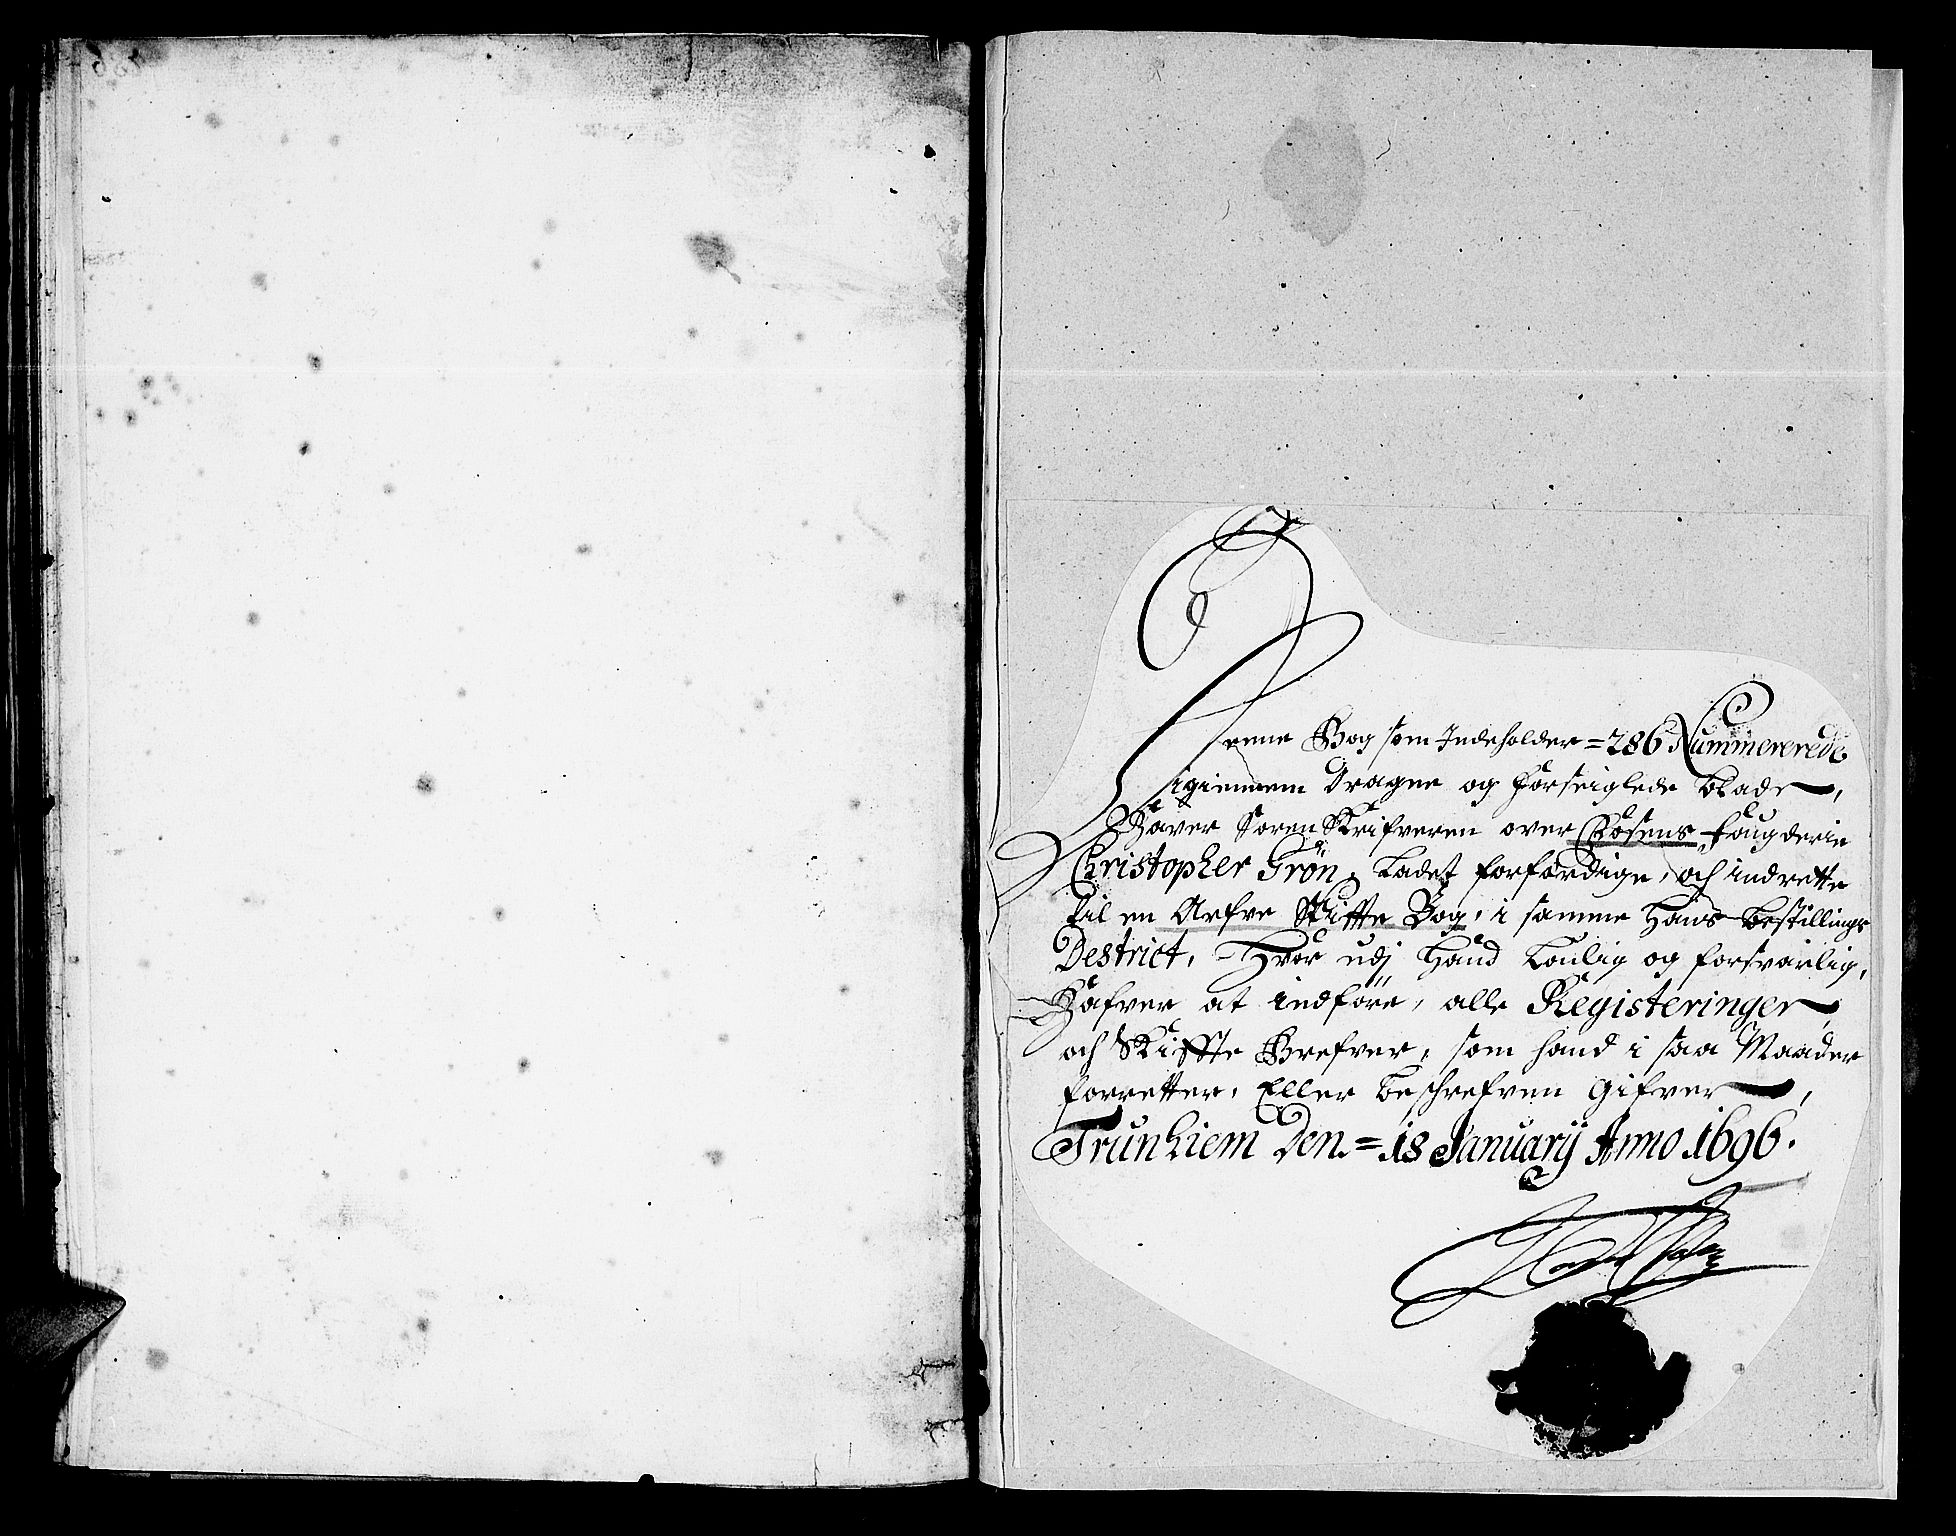 Denne Bog som Indeholder = 286 Nummererede
igiennem Dragne og Forseiglede blade,
Haver Soren Skrifveren over Fosens fougderie
Christopher Grön, ladet forfærdige, och indrette
til en Arfve Skiffte Bog, i samme Hans bestillings
Destrict, Hvor udj Hand Loulig og forsvarlig,
Hafver at indföre, alle Registeringer
och Skiffte Brefver, som hand i saa Maader
forretter, Eller beschrefven Gifver,
Trunhiem Den = 18 Januarij Anno 1696.